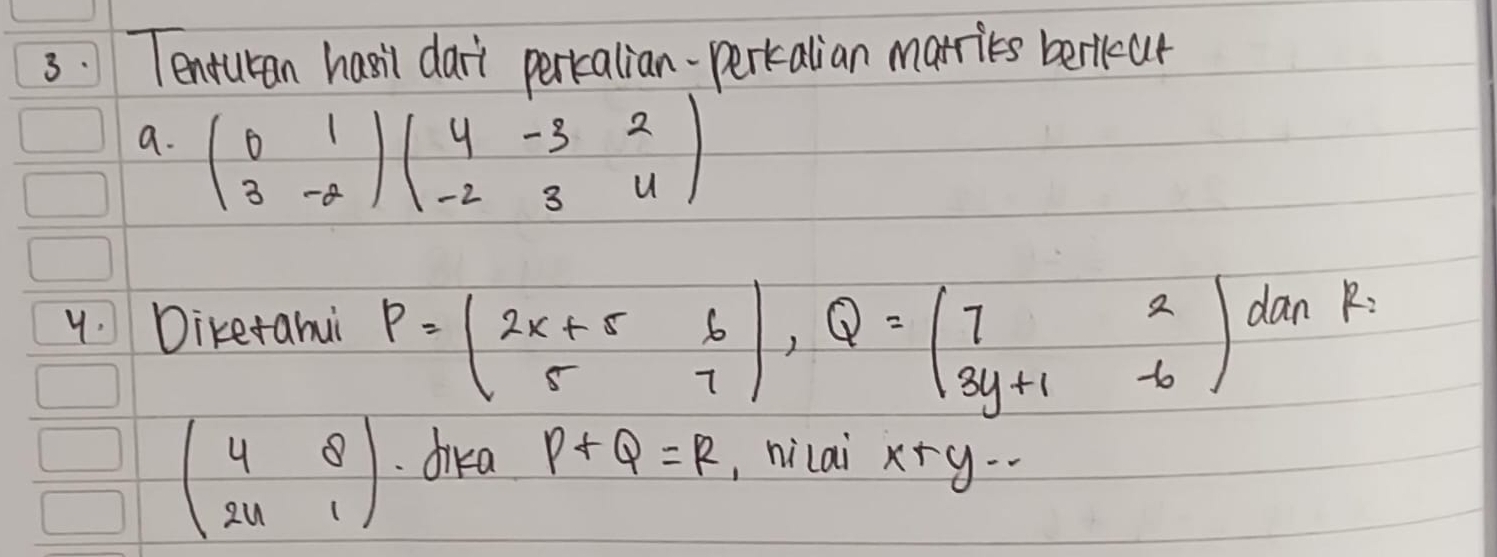 3. Tentukan hasil dari perkalian-perkalian matriks berikut
a. ( 0 1 ) ( 4 -3 2 )
( 3 -2 ) ( -2 3 4 )
4. Diketahui P = ( 2x + 5 6 ) , Q = ( 7 2 ) dan R =
( 5 7 ) ( 3y+1 -6 )
( 4 8 ) . Jika P + Q = R, nilai x+y ..
( 24 1 )